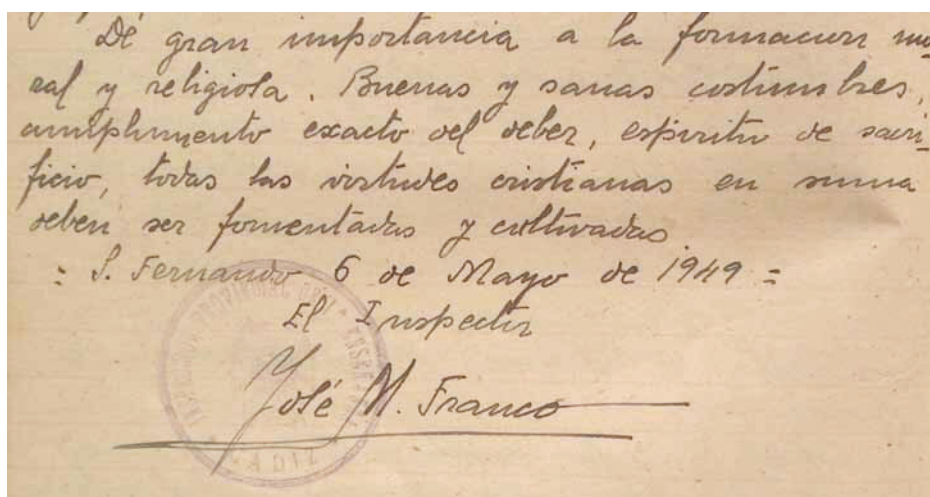 Dé gran importancia a la formacion mo-
ral y religiosa. Buenas y sanas costumbres,
cumplimento exacto del deber, espiritu de sacri-
ficio, todas las virtudes cristianas en suma
deben ser fomentadas y cultivadas
= S. Fernando 6 de Mayo de 1949 =
El Inspector
José M. Franco
INSPECCION PROVINCIAL DE
CADIZ